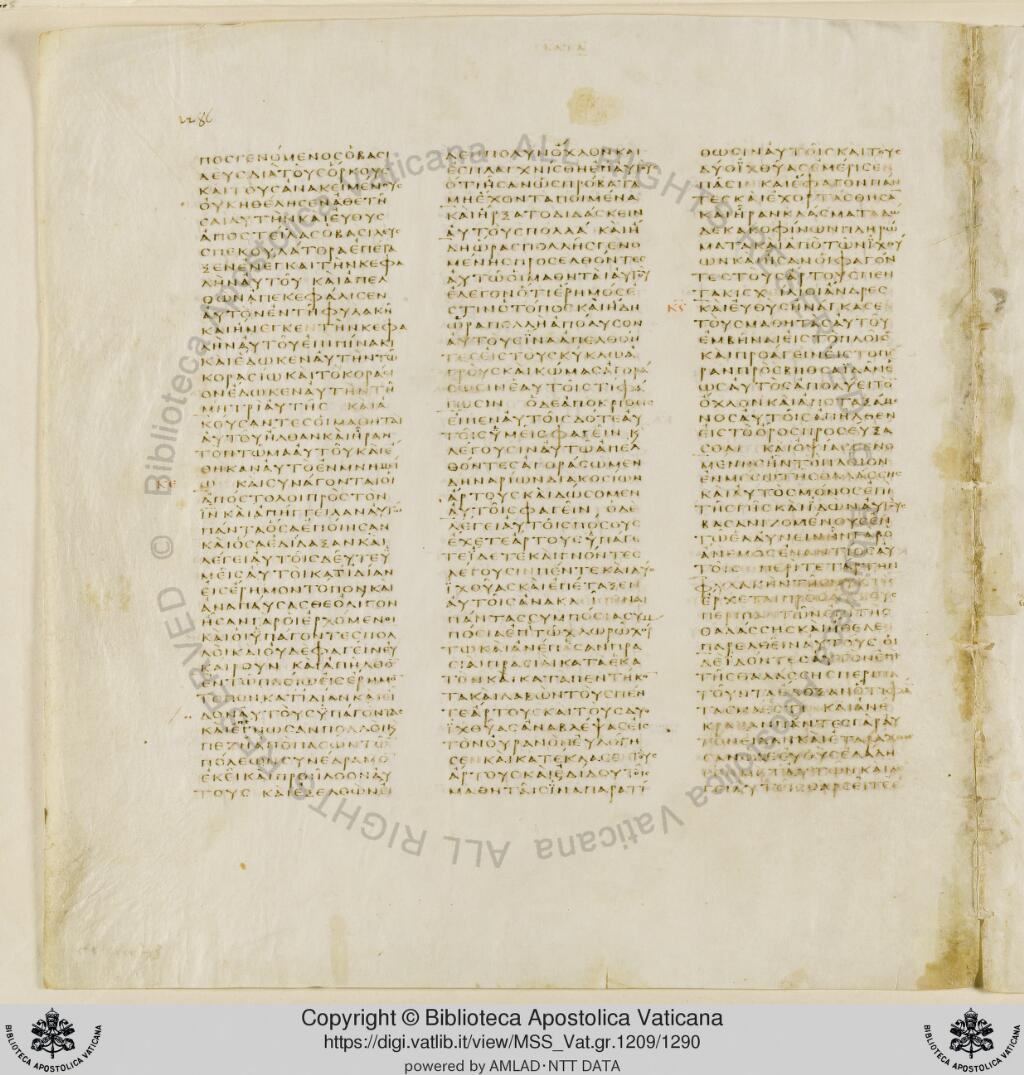 ΚΑΤΑ
1286
ΠΟΣΓΕΝΟΜΕΝΟΣΟΒΑΣΙ
ΛΕΥΣΔΙΑΤΟΥΣΟΡΚΟΥΣ
ΚΑΙΤΟΥΣΑΝΑΚΕΙΜΕΝΟΥΣ
ΟΥΚΗΘΕΛΗΣΕΝΑΘΕΤΗ
ΣΑΙΑΥΤΗΝΚΑΙΕΥΘΥΣ
ΑΠΟΣΤΕΙΛΑΣΟΒΑΣΙΛΕΥΣ
ΣΠΕΚΟΥΛΑΤΟΡΑΕΠΕΤΑ
ΞΕΝΕΝΕΓΚΑΙΤΗΝΚΕΦΑ
ΛΗΝΑΥΤΟΥ ΚΑΙΑΠΕΛ
ΘΩΝΑΠΕΚΕΦΑΛΙΣΕΝ
ΑΥΤΟΝΕΝΤΗΦΥΛΑΚΗ
ΚΑΙΗΝΕΓΚΕΝΤΗΝΚΕΦΑ
ΛΗΝΑΥΤΟΥΕΠΙΠΙΝΑΚΙ
ΚΑΙΕΔΩΚΕΝΑΥΤΗΝΤΩ
ΚΟΡΑΣΙΩΚΑΙΤΟΚΟΡΑΣΙ
ΟΝΕΔΩΚΕΝΑΥΤΗΝΤΗ
ΜΗΤΡΙΑΥΤΗΣ ΚΑΙΑ
ΚΟΥΣΑΝΤΕΣΟΙΜΑΘΗΤΑΙ
ΑΥΤΟΥΗΛΘΑΝΚΑΙΗΡΑΝ
ΤΟΠΤΩΜΑΑΥΤΟΥΚΑΙΕ
ΘΗΚΑΝΑΥΤΟΕΝΜΝΗΜΕΙ
ΚΕ Ω ΚΑΙΣΥΝΑΓΟΝΤΑΙΟΙ
ΑΠΟΣΤΟΛΟΙΠΡΟΣΤΟΝ
ΙΝ ΚΑΙΑΠΗΓΓΕΙΛΑΝΑΥΤΩ
ΠΑΝΤΑΟΣΑΕΠΟΙΗΣΑΝ
ΚΑΙΟΣΑΕΔΙΔΑΞΑΝΚΑΙ
ΛΕΓΕΙΑΥΤΟΙΣΔΕΥΤΕΥ
ΜΕΙΣΑΥΤΟΙΚΑΤΙΔΙΑΝ
ΕΙΣΕΡΗΜΟΝΤΟΠΟΝΚΑΙ
ΑΝΑΠΑΥΣΑΣΘΕΟΛΙΓΟΝ
ΗΣΑΝΓΑΡΟΙΕΡΧΟΜΕΝΟΙ
ΚΑΙΟΙΥΠΑΓΟΝΤΕΣΠΟΛ
ΛΟΙΚΑΙΟΥΔΕΦΑΓΕΙΝΕΥ
ΚΑΙΡΟΥΝ ΚΑΙΑΠΗΛΘΟ
ΕΝΤΩΠΛΟΙΩΕΙΣΕΡΗΜΟΝ
ΤΟΠΟΝΚΑΤΙΔΙΑΝΚΑΙΕΙ
ΔΟΝΑΥΤΟΥΣΥΠΑΓΟΝΤΑΣ
ΚΑΙΕΓΝΩΣΑΝΠΟΛΛΟΙΚ
ΠΕΖΗΑΠΟΠΑΣΩΝΤΩ
ΠΟΛΕΩΝΣΥΝΕΔΡΑΜΟ
ΕΚΕΙΚΑΙΠΡΟΗΛΘΟΝΑΥ
ΤΟΥΣ ΚΑΙΕΞΕΛΘΩΝΕΙ
ΔΕΝΠΟΛΥΝΟΧΛΟΝΚΑΙ
ΕΣΠΛΑΓΧΝΙΣΘΗΕΠΑΥΤΟΥΣ
ΟΤΙΗΣΑΝΩΣΠΡΟΒΑΤΑ
ΜΗΕΧΟΝΤΑΠΟΙΜΕΝΑ
ΚΑΙΗΡΞΑΤΟΔΙΔΑΣΚΕΙΝ
ΑΥΤΟΥΣΠΟΛΛΑ ΚΑΙΗ
ΔΗΩΡΑΣΠΟΛΛΗΣΓΕΝΟ
ΜΕΝΗΣΠΡΟΣΕΛΘΟΝΤΕΣ
ΑΥΤΩΟΙΜΑΘΗΤΑΙΑΥΤΟΥ
ΕΛΕΓΟΝΟΤΙΕΡΗΜΟΣΕ
ΣΤΙΝΟΤΟΠΟΣΚΑΙΗΔΗ
ΩΡΑΠΟΛΛΗΑΠΟΛΥΣΟΝ
ΑΥΤΟΥΣΙΝΑΑΠΕΛΘΟΝ
ΤΕΣΕΙΣΤΟΥΣΚΥΚΛΩΑ
ΓΡΟΥΣΚΑΙΚΩΜΑΣΑΓΟΡΑ
ΣΩΣΙΝΕΑΥΤΟΙΣΤΙΦΑ
ΓΩΣΙΝ ΟΔΕΑΠΟΚΡΙΘΕΙΣ
ΕΙΠΕΝΑΥΤΟΙΣΔΟΤΕΑΥ
ΤΟΙΣΥΜΕΙΣΦΑΓΕΙΝ Κ
ΛΕΓΟΥΣΙΝΑΥΤΩΑΠΕΛ
ΘΟΝΤΕΣΑΓΟΡΑΣΩΜΕΝ
ΔΗΝΑΡΙΩΝΔΙΑΚΟΣΙΩΝ
ΑΡΤΟΥΣΚΑΙΔΩΣΟΜΕΝ
ΑΥΤΟΙΣΦΑΓΕΙΝ ΟΔΕ
ΛΕΓΕΙΑΥΤΟΙΣΠΟΣΟΥΣ
ΕΧΕΤΕΑΡΤΟΥΣΥΠΑΓΕ
ΤΕΙΔΕΤΕΚΑΙΓΝΟΝΤΕΣ
ΛΕΓΟΥΣΙΝΠΕΝΤΕΚΑΙΔΥ
ΙΧΘΥΑΣΚΑΙΕΠΕΤΑΞΕΝ
ΑΥΤΟΙΣΑΝΑΚΛΙΘΗΝΑΙ
ΠΑΝΤΑΣΣΥΜΠΟΣΙΑΣΥΜ
ΠΟΣΙΑΕΠΙΤΩΧΛΩΡΩΧΟΡ
ΤΩΚΑΙΑΝΕΠΕΣΑΝΠΡΑ
ΣΙΑΙΠΡΑΣΙΑΙΚΑΤΑΕΚΑ
ΤΟΝΚΑΙΚΑΤΑΠΕΝΤΗΚΟ
ΤΑΚΑΙΛΑΒΩΝΤΟΥΣΠΕΝ
ΤΕΑΡΤΟΥΣΚΑΙΤΟΥΣΔΥΟ
ΙΧΘΥΑΣΑΝΑΒΛΕΨΑΣΕΙΣ
ΤΟΝΟΥΡΑΝΟΝΕΥΛΟΓΗ
ΣΕΝΚΑΙΚΑΤΕΚΛΑΣΕΤΟΥΣ
ΑΡΤΟΥΣΚΑΙΕΔΙΔΟΥΤΟΙΣ
ΜΑΘΗΤΑΙΣΙΝΑΠΑΡΑΤΙ
ΘΩΣΙΝΑΥΤΟΙΣΚΑΙΤΟΥΣ
ΔΥΟΙΧΘΥΑΣΕΜΕΡΙΣΕ
ΠΑΣΙΝΚΑΙΕΦΑΓΟΝΠΑΝ
ΤΕΣΚΑΙΕΧΟΡΤΑΣΘΗΣΑ
ΚΑΙΗΡΑΝΚΛΑΣΜΑΤΑΔΩ
ΔΕΚΑΚΟΦΙΝΩΝΠΛΗΡΩ
ΜΑΤΑΚΑΙΑΠΟΤΩΝΙΧΘΥ
ΩΝΚΑΙΗΣΑΝΟΙΦΑΓΟΝ
ΤΕΣΤΟΥΣΑΡΤΟΥΣΠΕΝ
ΤΑΚΙΣΧΙΛΙΟΙΑΝΔΡΕΣ
ΚϚ ΚΑΙΕΥΘΥΣΗΝΑΓΚΑΣΕ
ΤΟΥΣΜΑΘΗΤΑΣΑΥΤΟΥ
ΕΜΒΗΝΑΙΕΙΣΤΟΠΛΟΙΟ
ΚΑΙΠΡΟΑΓΕΙΝΕΙΣΤΟΠΕ
ΡΑΝΠΡΟΣΒΗΘΣΑΙΔΑΝΕ
ΩΣΑΥΤΟΣΑΠΟΛΥΕΙΤΟ
ΟΧΛΟΝΚΑΙΑΠΟΤΑΞΑΜΕ
ΝΟΣΑΥΤΟΙΣΑΠΗΛΘΕΝ
ΕΙΣΤΟΟΡΟΣΠΡΟΣΕΥΞΑ
ΣΘΑΙ ΚΑΙΟΨΙΑΣΓΕΝΟ
ΜΕΝΗΣΗΝΤΟΠΛΟΙΟΝ
ΕΝΜΕΣΩΤΗΣΘΑΛΑΣΣΗΣ
ΚΑΙΑΥΤΟΣΜΟΝΟΣΕΠΙ
ΤΗΣΓΗΣΚΑΙΙΔΩΝΑΥΤΟΥΣ
ΒΑΣΑΝΙΖΟΜΕΝΟΥΣΕΝ
ΤΩΕΛΑΥΝΕΙΝΗΝΓΑΡΟ
ΑΝΕΜΟΣΕΝΑΝΤΙΟΣΑΥ
ΤΟΙΣ ΠΕΡΙΤΕΤΑΡΤΗΝ
ΦΥΛΑΚΗΝΤΗΣΝΥΚΤΟΣ
ΕΡΧΕΤΑΙΠΡΟΣΑΥΤΟΥΣ
ΠΕΡΙΠΑΤΩΝΕΠΙΤΗΣ
ΘΑΛΑΣΣΗΣΚΑΙΗΘΕΛΕ
ΠΑΡΕΛΘΕΙΝΑΥΤΟΥΣ ΟΙ
ΔΕΙΔΟΝΤΕΣΑΥΤΟΝΕΠΙ
ΤΗΣΘΑΛΑΣΣΗΣΠΕΡΙΠΑ
ΤΟΥΝΤΑΕΔΟΞΑΝΟΤΙΦΑ
ΤΑΣΜΑΕΣΤΙΝΚΑΙΑΝΕ
ΚΡΑΞΑΝΠΑΝΤΕΣΓΑΡΑΥ
ΤΟΝΕΙΔΑΝΚΑΙΕΤΑΡΑΧΘΗ
ΣΑΝΟΔΕΕΥΘΥΣΕΛΑΛΗ
ΣΕΝΜΕΤΑΥΤΩΝΚΑΙΛΕ
ΓΕΙΑΥΤΟΙΣΘΑΡΣΕΙΤΕΕ
© Biblioteca Apostolica Vaticana ALL RIGHTS RESERVED
Copyright © Biblioteca Apostolica Vaticana
https://digi.vatlib.it/view/MSS_Vat.gr.1209/1290
powered by AMLAD·NTT DATA
BIBLIOTECA APOSTOLICA VATICANA
BIBLIOTECA APOSTOLICA VATICANA